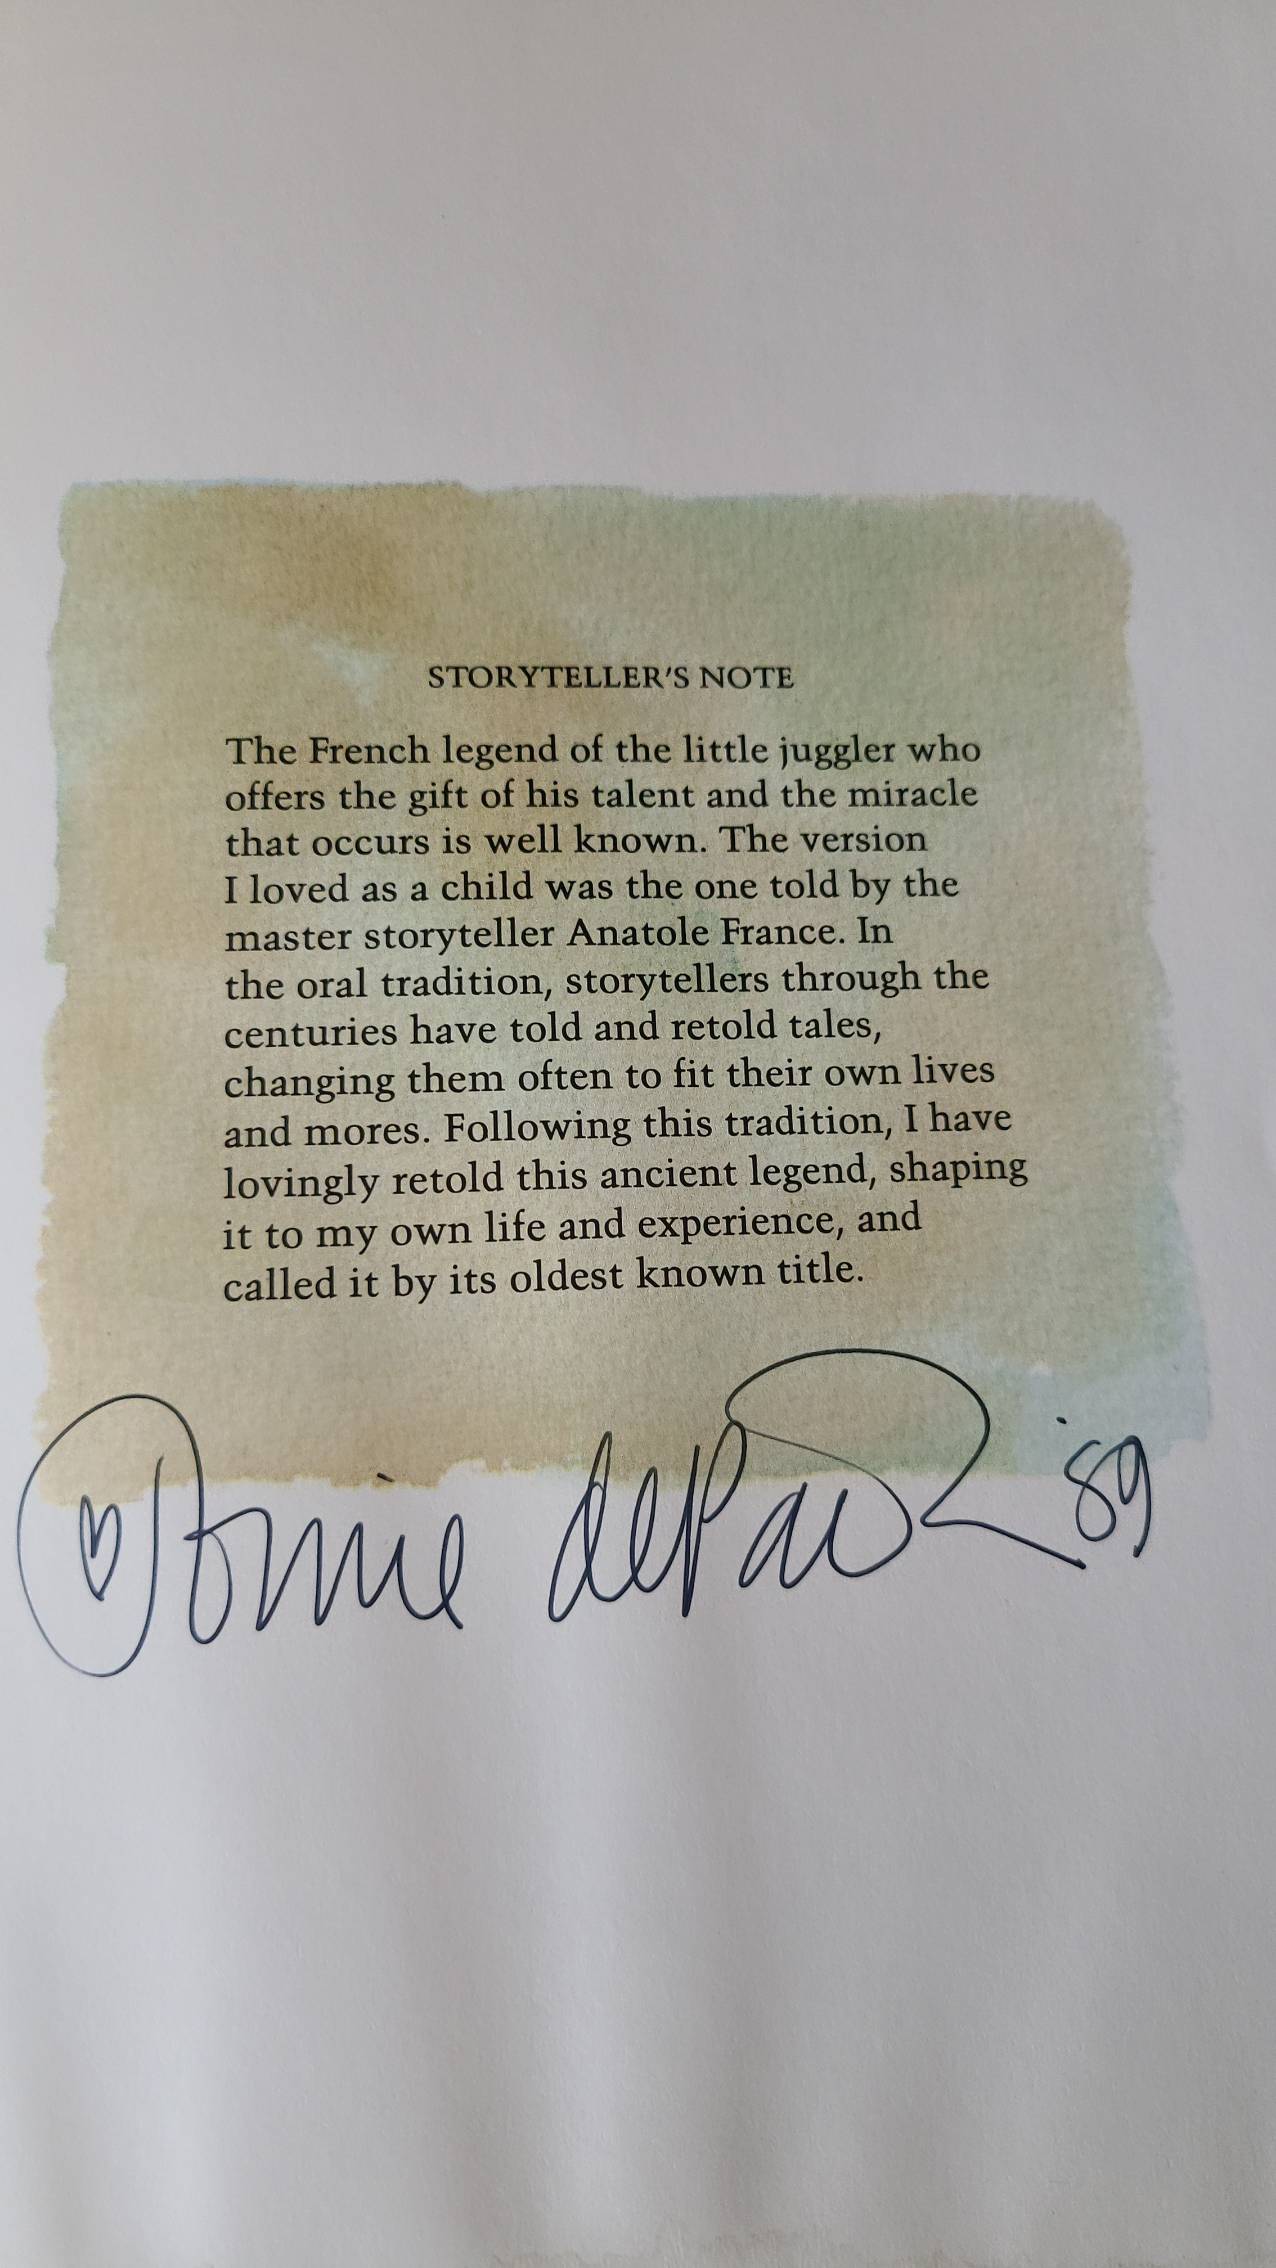 STORYTELLER'S NOTE
The French legend of the little juggler who
offers the gift of his talent and the miracle
that occurs is well known. The version
I loved as a child was the one told by the
master storyteller Anatole France. In
the oral tradition, storytellers through the
centuries have told and retold tales,
changing them often to fit their own lives
and mores. Following this tradition, I have
lovingly retold this ancient legend, shaping
it to my own life and experience, and
called it by its oldest known title.
Tomie dePaola '89